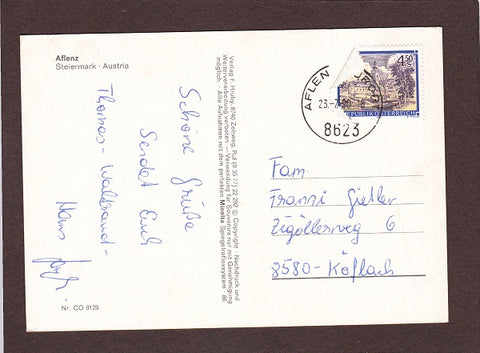 Aflenz
Steiermark · Austria
Schöne Grüße
Sendet Euch
Thomas - Waltraud -
Hans
Verlag F. Hruby, 8740 Zeltweg, Ruf (0 35 77) 22 292 © Copyright · Nachdruck und
Weiterverarbeitung verboten. — Verwendung für Souvenirs nur mit Genehmigung
möglich. · Alle Aufnahmen mit dem perfekten Minolta Spiegelreflexsystem · 86
Nr. CO 9129
4.50
REPUBLIK ÖSTERREICH
AFLENZ KURORT
8623
Fam.
Franzi Gießler
Zigöllerweg 6
8580 - Köflach